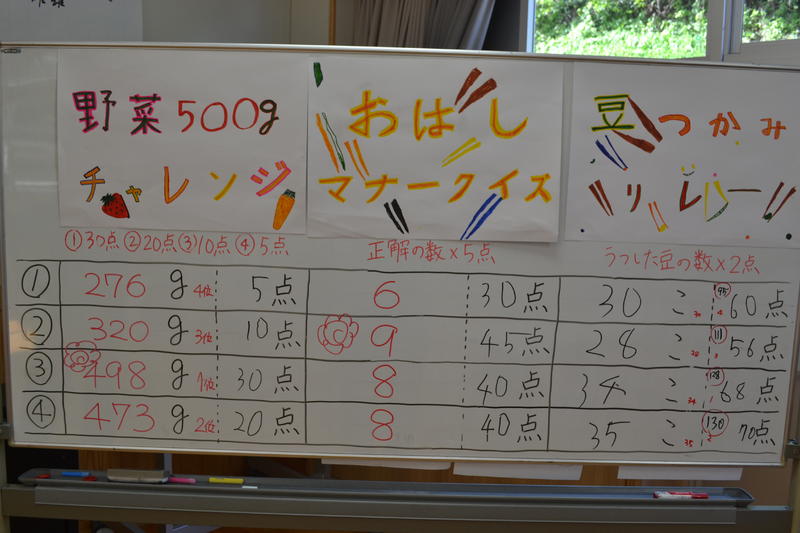 野菜500g
チャレンジ
おはし
マナークイズ
豆つかみ
リレー
①30点②20点③10点④5点
正解の数×5点
うつした豆の数×2点
① 276g 4位 5点 6 30点 30こ 30 95 60点
② 320g 3位 10点 9 45点 28こ 28 111 56点
③ 498g 1位 30点 8 40点 34こ 34 138 68点
④ 473g 2位 20点 8 40点 35こ 35 130 70点